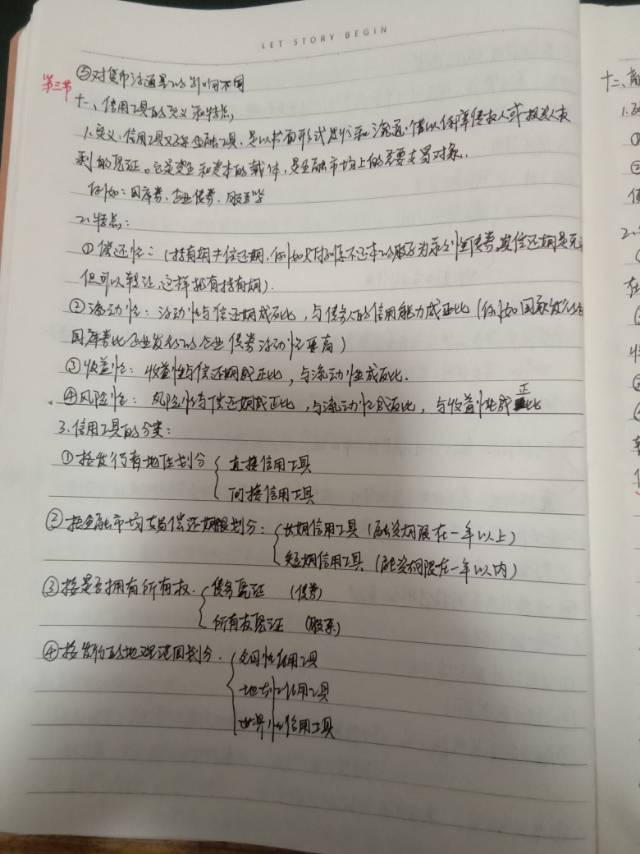 LET STORY BEGIN
⑤对货币流通量的影响不同
第三节
十一、信用工具的定义和特点
1.定义:信用工具又称金融工具,是以书面形式发行和流通、借以保障债权人或投资人权
利的凭证。它是资金和资本的载体,是金融市场上的重要交易对象。
例如:国库券、企业债券、股票等
2.特点:
①偿还性:(持有期≠偿还期,例如
但可以转让,这样就有持有期).
②流动性:流动性与偿还期成反比,与债务人的信用能力成正比(例如国家发行的
国库券比企业发行的企业债券流动性要高)
③收益性:收益性与偿还期成正比,与流动性成反比.
④风险性:风险性与偿还期成正比,与流动性成反比,与收益性成正比
3.信用工具的分类:
①按发行者地位划分 直接信用工具
间接信用工具
②按金融市场交易偿还期限划分: 长期信用工具(融资期限在一年以上)
短期信用工具(融资期限在一年以内)
③按是否拥有所有权. 债务凭证 (债券)
所有权凭证 (股票)
④按发行的地理范围划分. 全国性信用工具
地方性信用工具
世界性信用工具